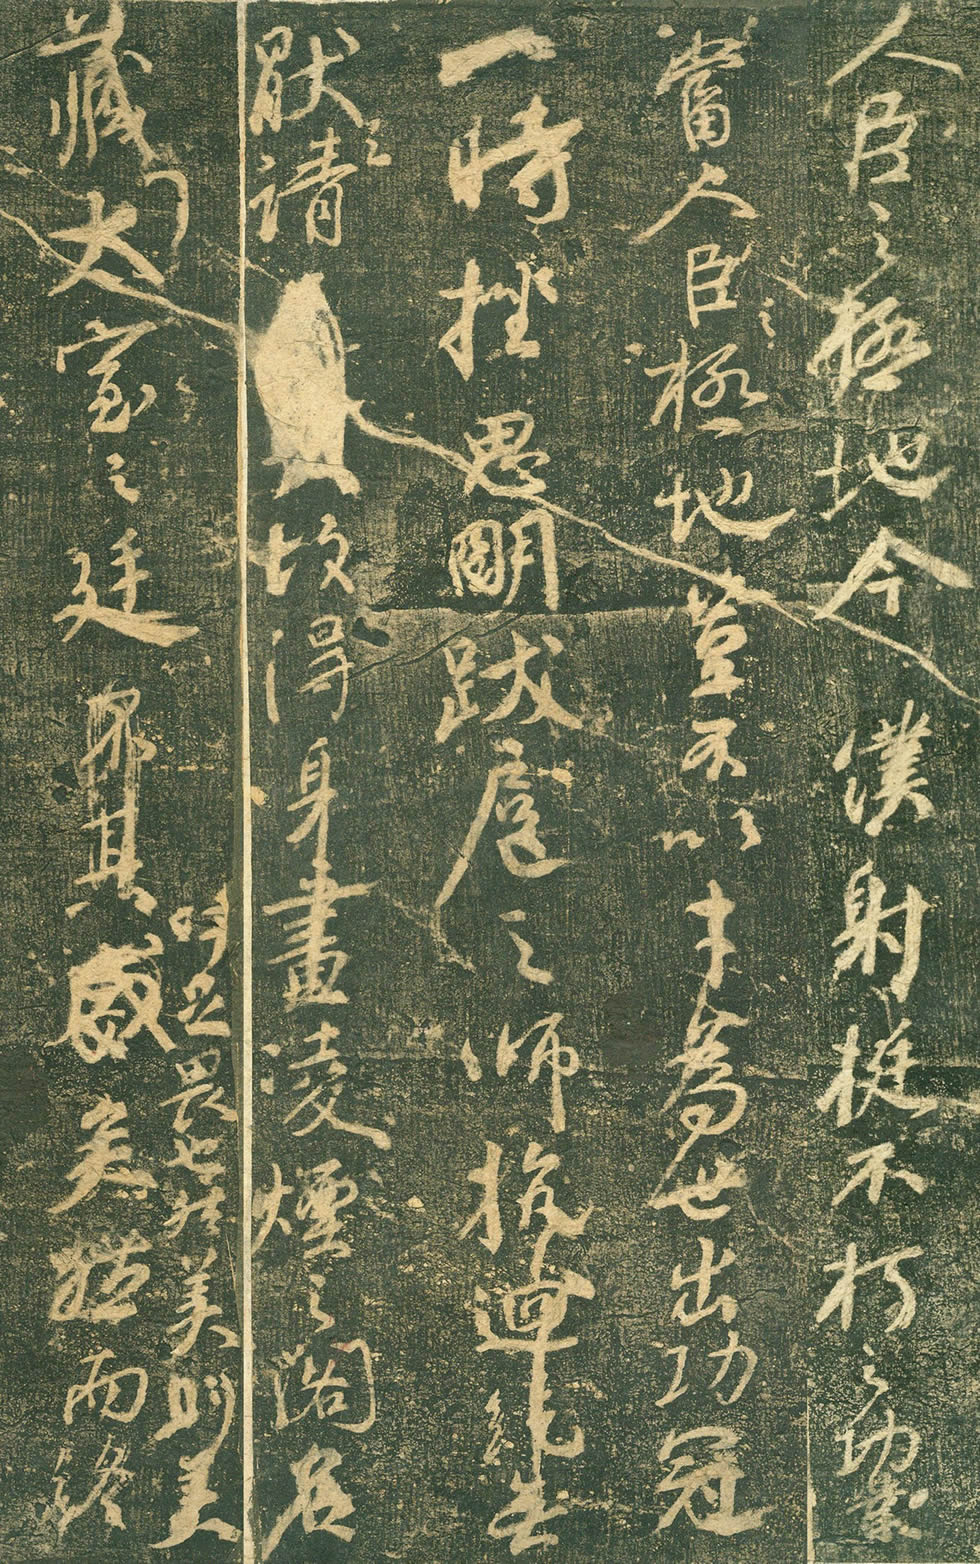 人臣之極地今僕射挺不朽之功業
當人臣極地豈不以才為世出功冠
一時挫思明跋扈之師抗迴紇無
厭之請故得身畫凌煙之閣名
藏太室之廷其盛矣然而終
吁足畏也然美則美